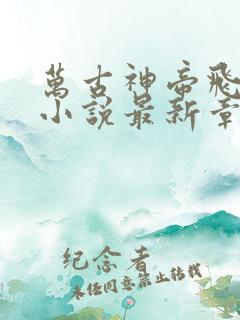 萬古神帝飛
小說最新章
纪念着
未经同意禁止转载